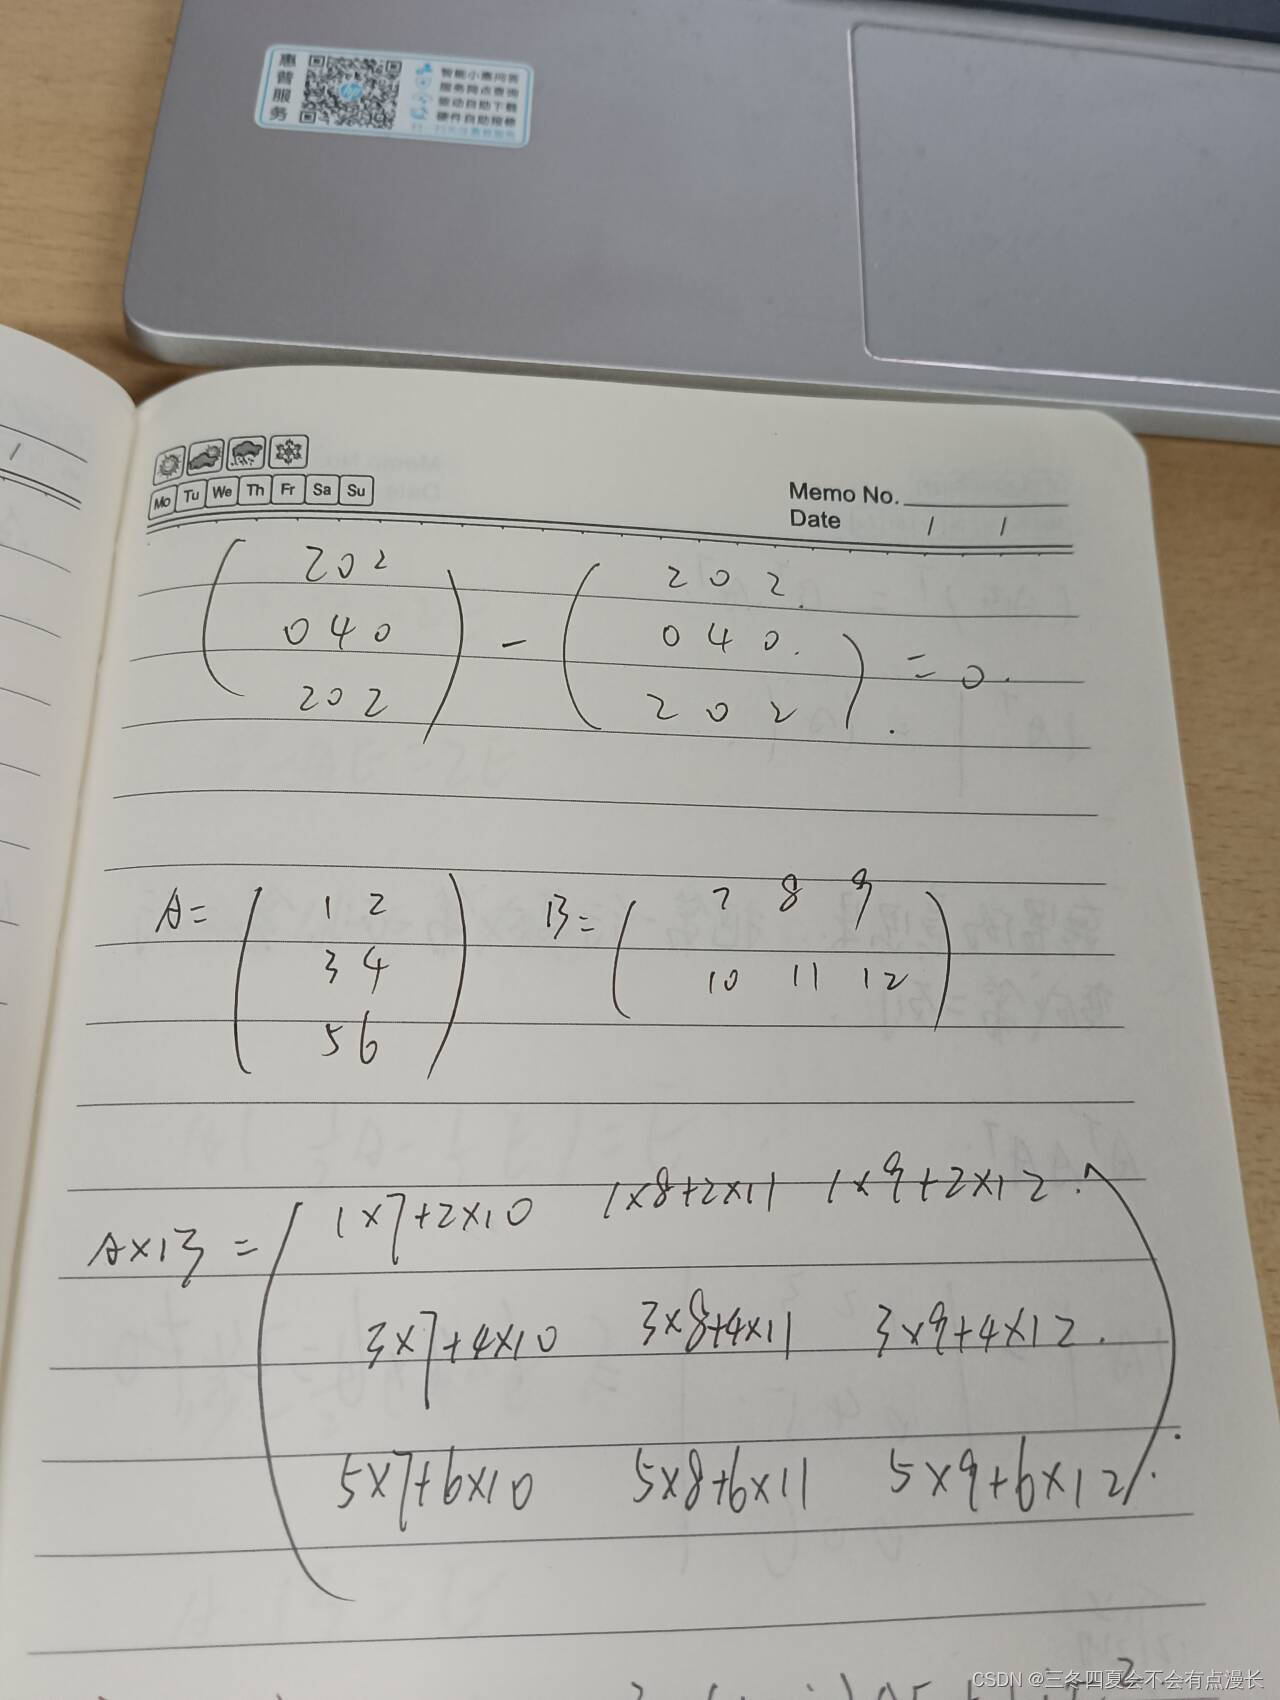 惠普服务
智能小惠问答
服务网点查询
驱动自助下载
硬件自助报修
Mo Tu We Th Fr Sa Su
Memo No.
Date / /
( 2 0 2 ) - ( 2 0 2. ) = 0.
0 4 0 0 4 0.
2 0 2 2 0 2
A = ( 1 2 ) B = ( 7 8 9 )
3 4 10 11 12
5 6
A×B = ( 1×7+2×10 1×8+2×11 1×9+2×12. )
3×7+4×10 3×8+4×11 3×9+4×12.
5×7+6×10 5×8+6×11 5×9+6×12.
CSDN @三冬四夏会不会有点漫长